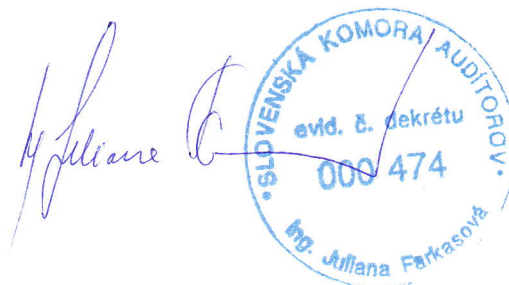 Juliana
SLOVENSKÁ KOMORA AUDÍTOROV
evid. č. dekrétu
000 474
Ing. Juliana Farkasová